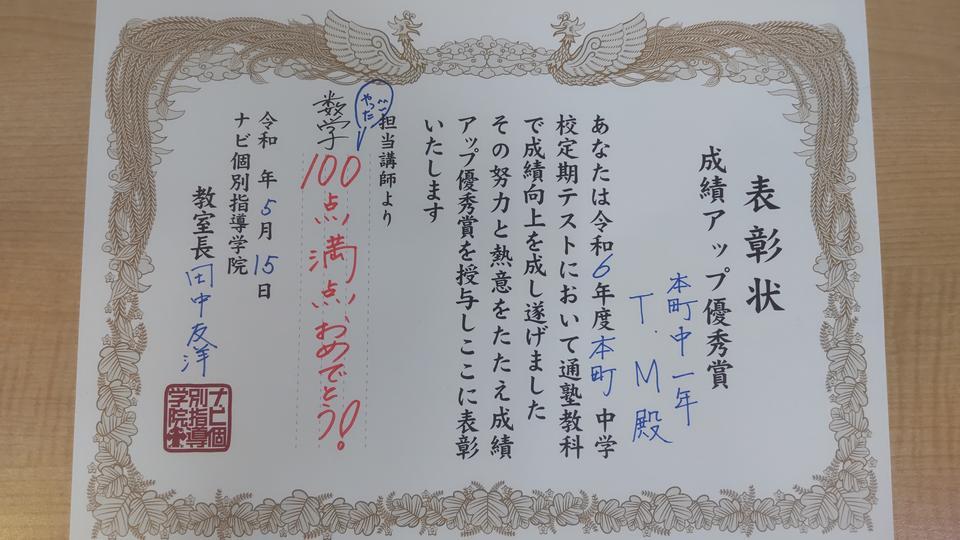 表彰状
成績アップ優秀賞
本町中一年
T.M殿
あなたは令和6年度本町中学
校定期テストにおいて通塾教科
で成績向上を成し遂げました
その努力と熱意をたたえ成績
アップ優秀賞を授与しここに表彰
いたします
担当講師より
やった
数学
100点満点おめでとう!
令和 年5月15日
ナビ個別指導学院
教室長 田中友洋
ナビ個
別指導
学院